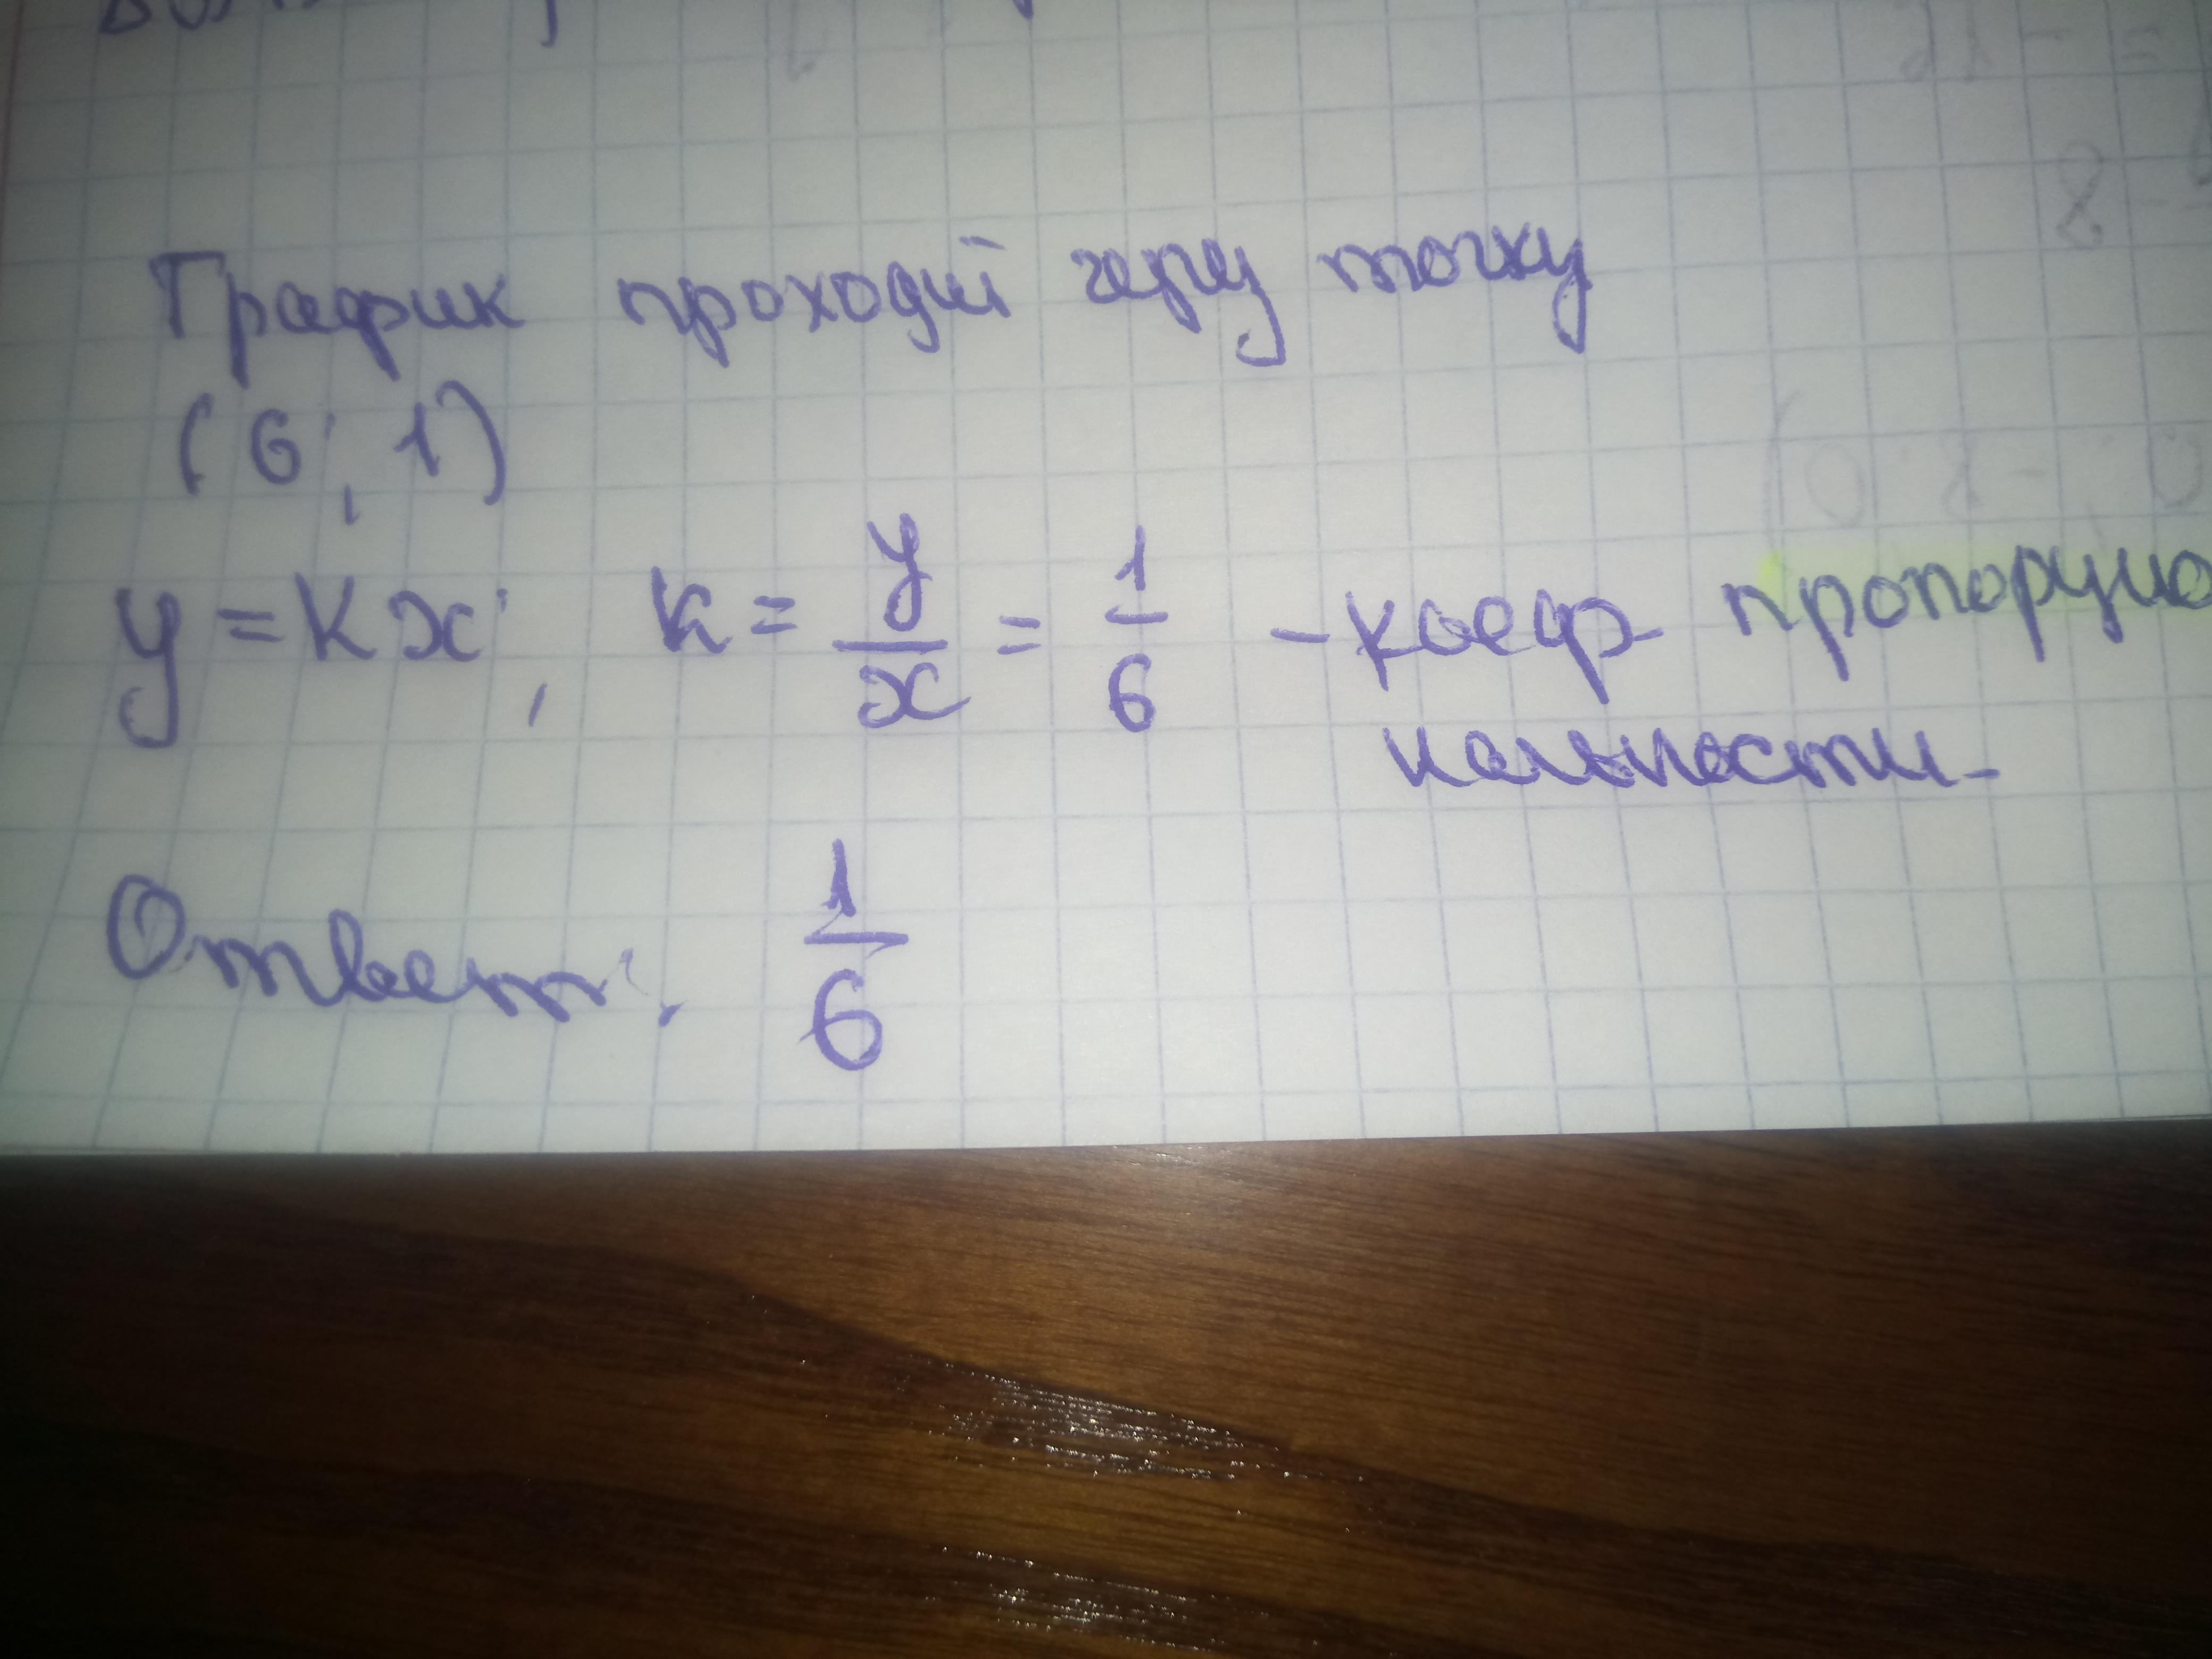 График проходит через точку
(6; 1)
y = kx; k = y/x = 1/6 - коеф. пропорцио
нальности.
Ответ: 1/6